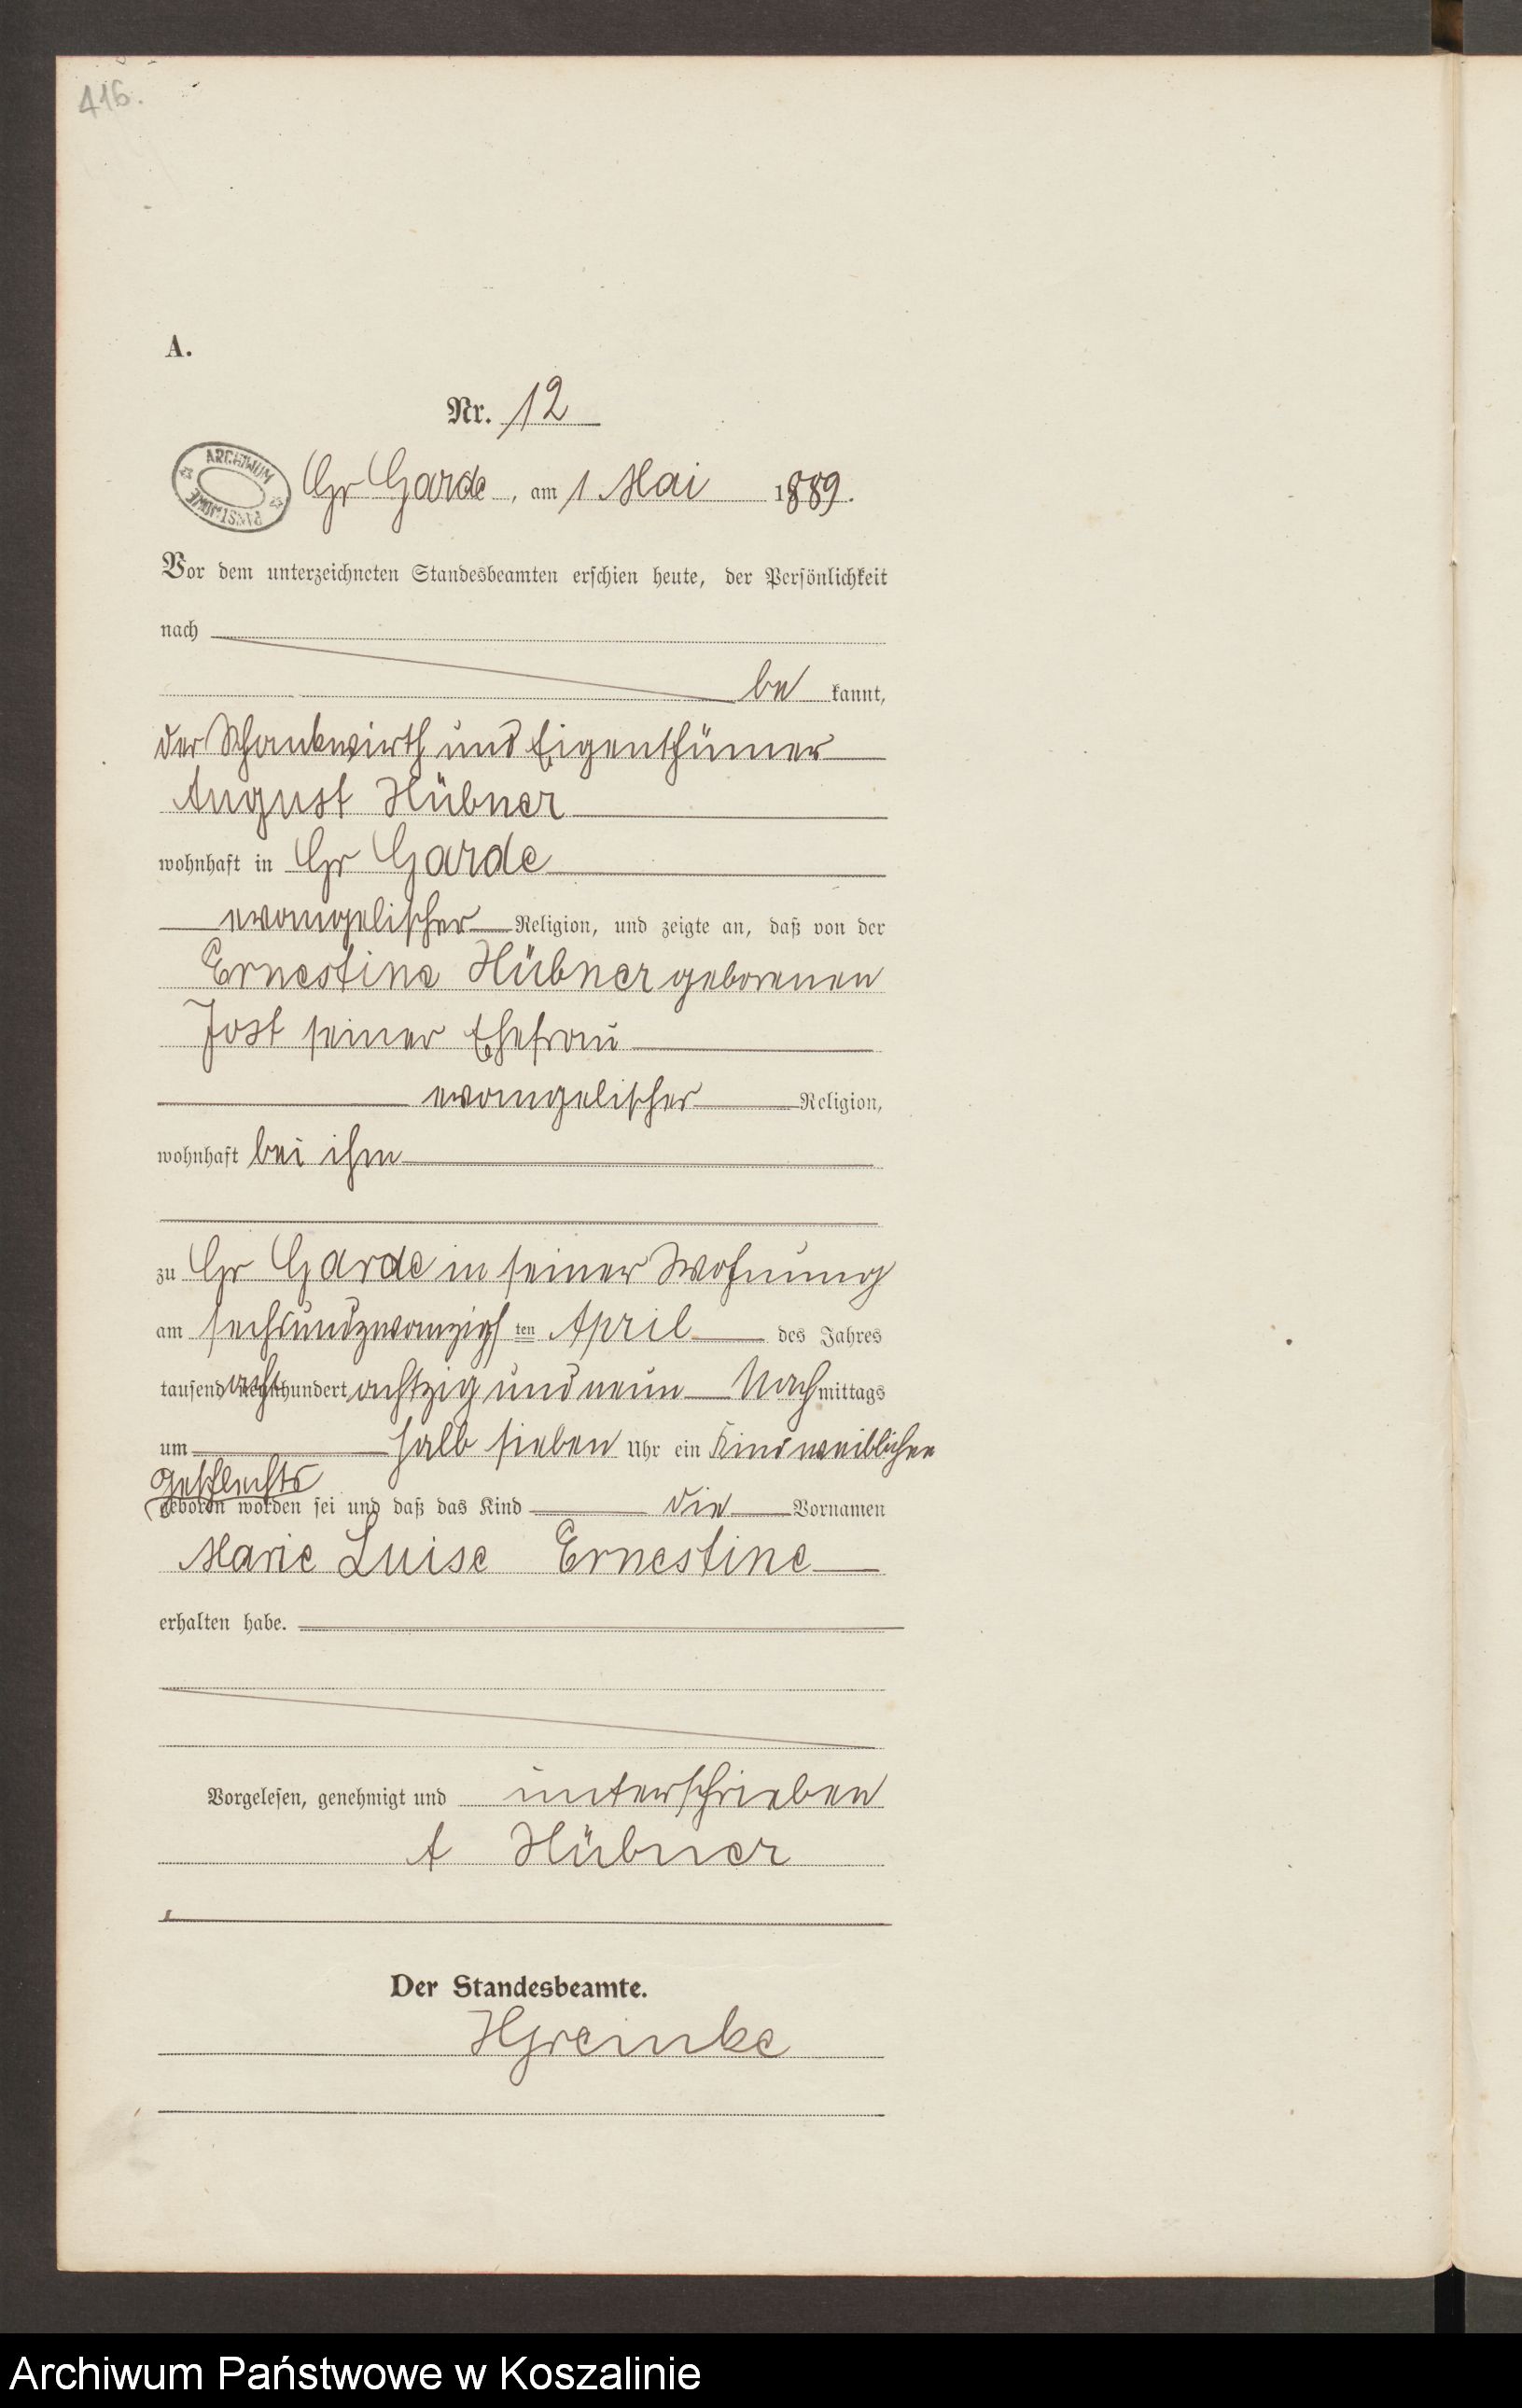 416.
A.
Nr. 12
ARCHIWUM PAŃSTWOWE
Gr Garde, am 1 Mai 1889.
Vor dem unterzeichneten Standesbeamten erschien heute, der Persönlichkeit
nach
be kannt,
der Schankwirth und Eigenthümer
August Hübner
wohnhaft in Gr Garde
evangelischer Religion, und zeigte an, daß von der
Ernestine Hübner geborenen
Jost seiner Ehefrau
evangelischer Religion,
wohnhaft bei ihm
zu Gr Garde in seiner Wohnung
am sechsundzwanzigsten April des Jahres
tausend acht hundert achtzig und neun Nachmittags
um halb sieben Uhr ein Kind weiblichen
Geschlechts
geboren worden sei und daß das Kind die Vornamen
Marie Luise Ernestine
erhalten habe.
Vorgelesen, genehmigt und unterschrieben
A Hübner
Der Standesbeamte.
Archiwum Państwowe w Koszalinie